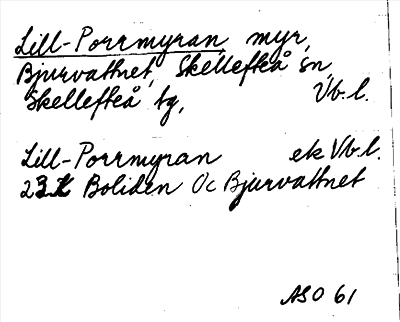 Lill-Porrmyran, myr,
Bjurvattnet, Skellefteå sn,
Skellefteå tg, Vb. l.
Lill-Porrmyran ek Vb. l.
23 K Boliden Oc Bjurvattnet
ASO 61